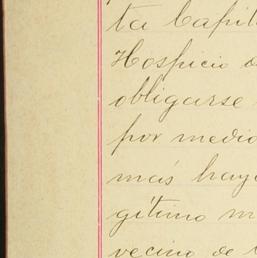 ta Capit
Hospicio
obligarse
por medio
más hay
gítimo m
vecino de